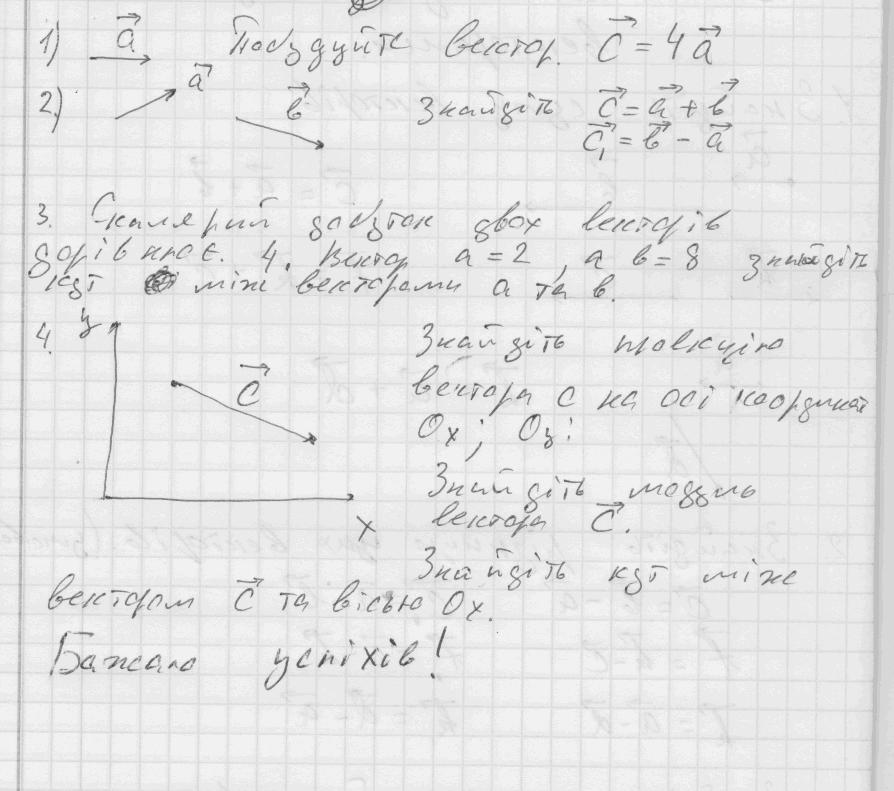 1) a⃗ Побудуйте вектор. c⃗ = 4a⃗
2.) a⃗ b⃗ Знайдіть c⃗ = a⃗ + b⃗
c⃗₁ = b⃗ - a⃗
3. Скалярий добуток двох векторів
дорівнює. 4. Вектор a = 2, а в = 8 знайдіть
кут між векторами а та в.
4. y c⃗ Знайдіть проекцію
вектора с на осі координат
Ox; Oy;
Знайдіть модуль
вектора c⃗.
x
Знайдіть кут між
вектром c⃗ та вісью Ox.
Бажаю успіхів!